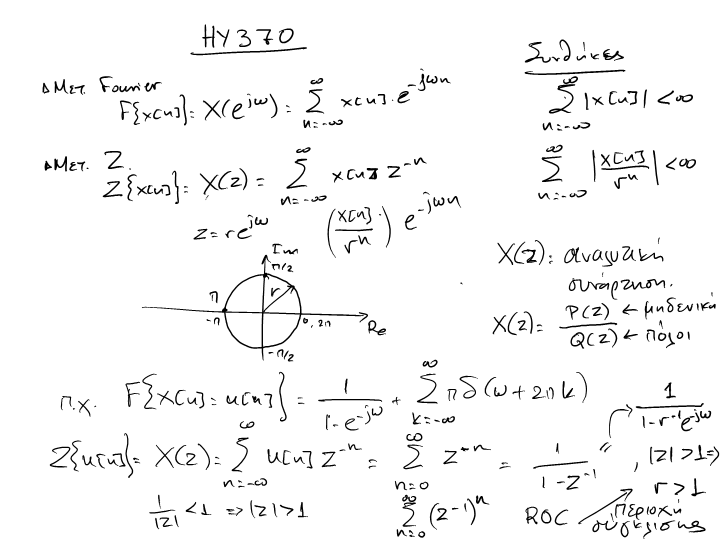 HY370
Συνθήκες
△ Μετ. Fourier
F{x[n]} = X(e^{jω}) = ∑_{n=-∞}^{∞} x[n] · e^{-jωn}
∑_{n=-∞}^{∞} |x[n]| < ∞
△ Μετ. Z.
Z{x[n]} = X(z) = ∑_{n=-∞}^{∞} x[n] z^{-n}
∑_{n=-∞}^{∞} |x[n]/r^n| < ∞
z = re^{jω} (x[n]/r^n) e^{-jωn}
Im
π/2
r
π
-π
0, 2π
Re
-π/2
X(z): αναλυτική
συνάρτηση.
X(z) = P(z)/Q(z)
← μηδενικά
← πόλοι
π.χ. F{x[n] = u[n]} = 1/(1-e^{-jω}) + ∑_{k=-∞}^{∞} πδ(ω + 2πk)
1/(1-r^{-1}e^{-jω})
Z{u[n]} = X(z) = ∑_{n=-∞}^{∞} u[n] z^{-n} = ∑_{n=0}^{∞} z^{-n} = 1/(1-z^{-1}), |z| > 1 ⇒
r > 1
1/|z| < 1 ⇒ |z| > 1
∑_{n=0}^{∞} (z^{-1})^n
ROC
περιοχή
σύγκλισης